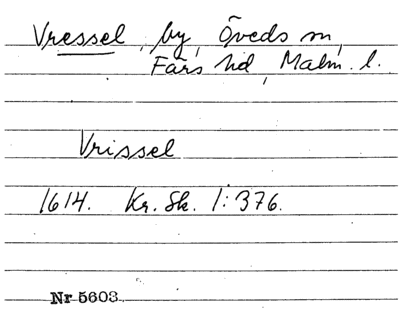 Vressel, by, Öveds sn,
Färs hd, Malm. l.
Vrissel
1614. Kr. Sk. 1:376.
Nr 5603